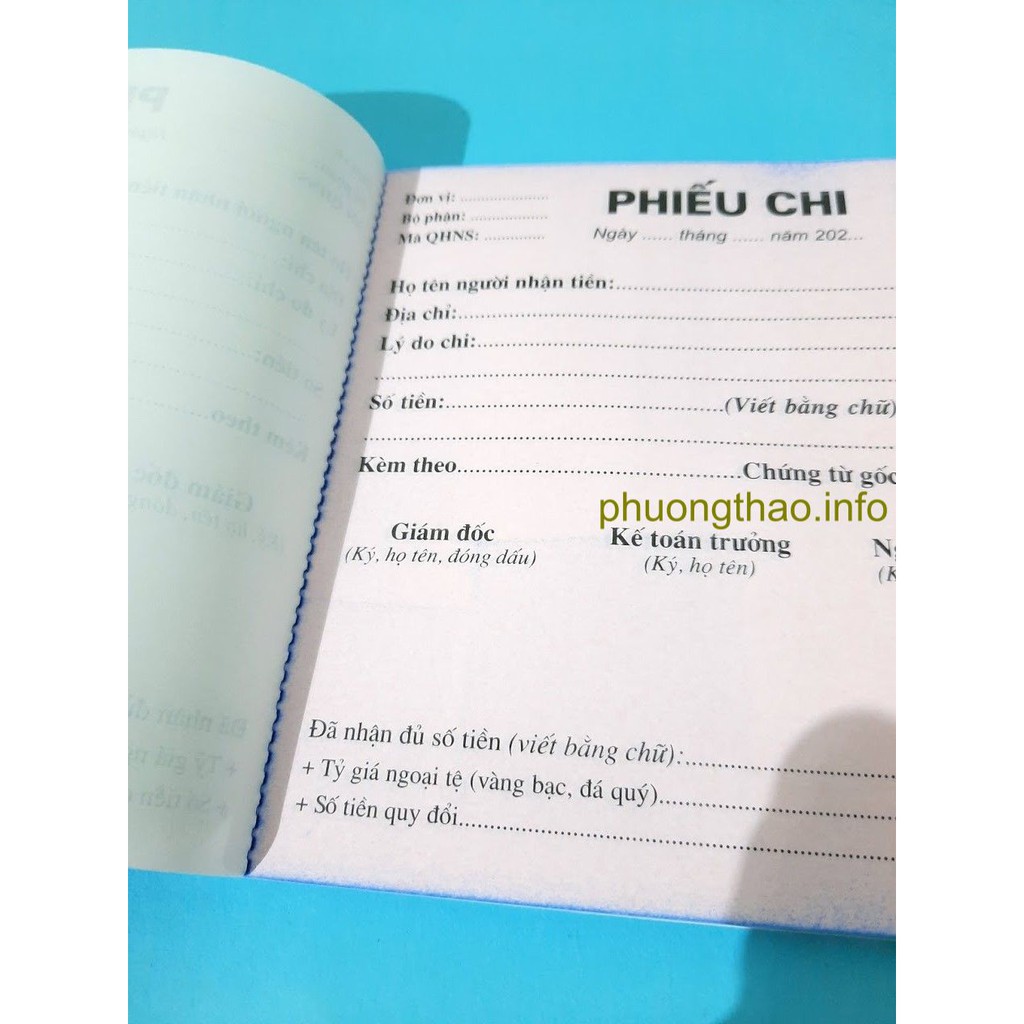 Đơn vị: ......................
Bộ phận: ...................
Mã QHNS: ...............
PHIẾU CHI
Ngày ...... tháng ...... năm 202...
Họ tên người nhận tiền:..............................
Địa chỉ:..............................
Lý do chi:..............................
Số tiền:..............................(Viết bằng chữ)
Kèm theo..............................Chứng từ gốc
phuongthao.info
Giám đốc
(Ký, họ tên, đóng dấu)
Kế toán trưởng
(Ký, họ tên)
Đã nhận đủ số tiền (viết bằng chữ):..............................
+ Tỷ giá ngoại tệ (vàng bạc, đá quý)..............................
+ Số tiền quy đổi..............................